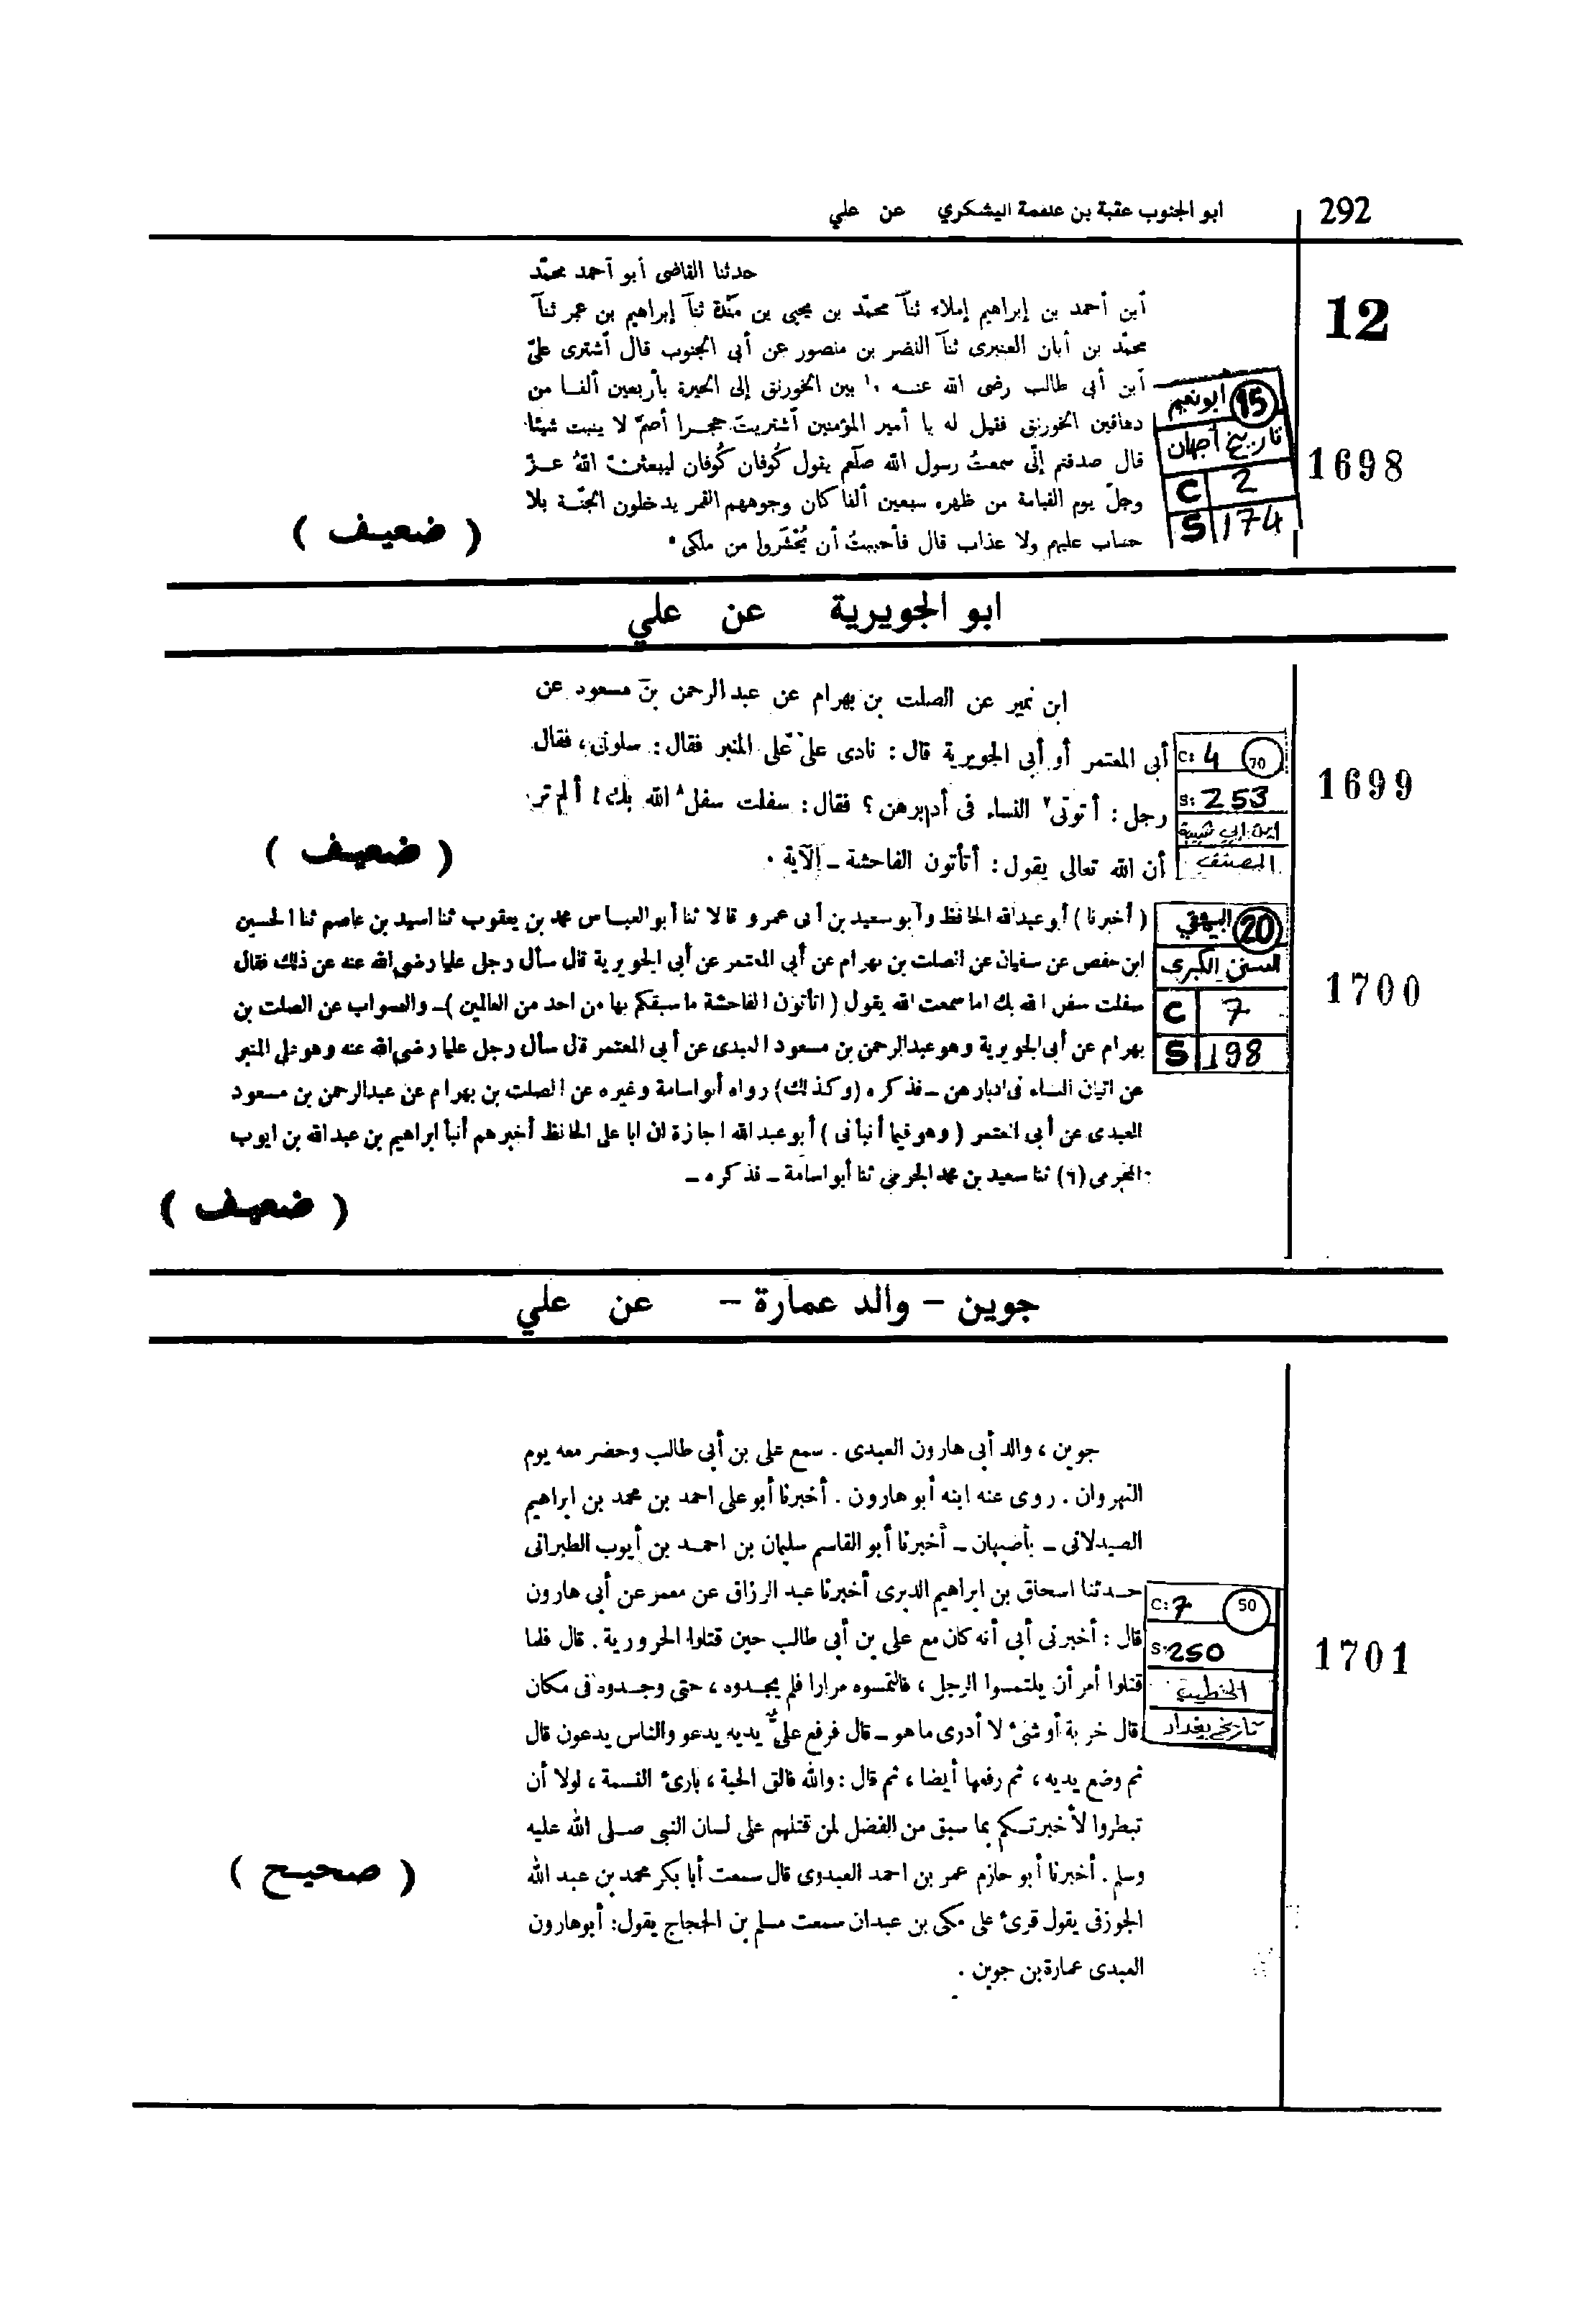 292
ابو الجنوب عقبة بن علقمة اليشكري عن علي
12
حدثنا القاضى أبو أحمد محمّد
أبن أحمد بن إبراهيم إملاء ثنآ محمّد بن يحيى بن مَنْدة ثنآ إبراهيم بن عمر ثنآ
محمّد بن أبان العنبرى ثنآ النضر بن منصور عن أبى الجنوب قال أشترى علىّ
أبن أبى طالب رضى الله عنه ١٠ بين الخورنق إلى الحيرة بأربعين ألفا من
دهاقين الخورنق فقيل له يا أمير المؤمنين أشتريتَ حجرا أصمّ لا ينبت شيئا
قال صدقتم إنّى سمعتُ رسول الله صلّعم يقول كُوفان كُوفان ليبعثنّ اللهُ عزّ
وجلّ يوم القيامة من ظهره سبعين ألفا كان وجوههم القمر يدخلون الجنّة بلا
حساب عليهم ولا عذاب قال فأحببتُ أن يُحْشَروا من ملكى ٠
15 ابونعيم
تاريخ أصبهان
C 2
S 174
1698
( ضعيف )
ابو الجويرية عن علي
ابن نمير عن الصلت بن بهرام عن عبدالرحمن بن مسعود عن
أبى المعتمر أو أبى الجويرية قال : نادى علىّ على المنبر فقال : سلونى ، فقال
رجل : أتوتى٧ النساء فى أدبارهن ؟ فقال : سفلت سفل٨ الله بك ! ألم تر
أن الله تعالى يقول : أتأتون الفاحشة ـ الآية ٠
70 C: 4
S: 253
ابن ابي شيبة
المصنف
1699
( ضعيف )
( أخبرنا ) أبو عبدالله الحافظ وأبو سعيد بن أبى عمرو قالا ثنا أبو العباس محمد بن يعقوب ثنا اسيد بن عاصم ثنا الحسين
ابن حفص عن سفيان عن الصلت بن بهرام عن أبى المعتمر عن أبى الجويرية قال سأل رجل عليا رضى الله عنه عن ذلك فقال
سفلت سفل الله بك اما سمعت الله يقول ( اتأتون الفاحشة ما سبقكم بها من احد من العالمين ) ـ والصواب عن الصلت بن
بهرام عن أبى الجويرية وهو عبدالرحمن بن مسعود العبدى عن أبى المعتمر قال سأل رجل عليا رضى الله عنه وهو على المنبر
عن اتيان النساء فى ادبارهن ـ فذكره ( وكذلك ) رواه أبو اسامة وغيره عن الصلت بن بهرام عن عبدالرحمن بن مسعود
العبدى عن أبى المعتمر ( وهو فيما أنبأنى ) أبو عبدالله اجازة ان ابا على الحافظ أخبرهم أنبأ ابراهيم بن عبدالله بن ايوب
المخرمى (٦) ثنا سعيد بن محمد الجرمى ثنا أبو اسامة ـ فذكره ـ
20 البيهقي
السنن الكبرى
C 7
S 198
1700
( ضعيف )
جوين - والد عمارة - عن علي
جوين ، والد أبى هارون العبدى . سمع على بن أبى طالب وحضر معه يوم
النهروان . روى عنه ابنه أبو هارون . أخبرنا أبو على احمد بن محمد بن ابراهيم
الصيدلانى ـ بأصبهان ـ أخبرنا أبو القاسم سليمان بن احمد بن أيوب الطبرانى
حدثنا اسحاق بن ابراهيم الدبرى أخبرنا عبد الرزاق عن معمر عن أبى هارون
قال : أخبرنى أبى أنه كان مع على بن أبى طالب حين قتلوا الحرورية . قال فلما
قتلوا أمر أن يلتمسوا الرجل ، فالتمسوه مرارا فلم يجدوه ، حتى وجدوه فى مكان
قال خربة أو شىء لا أدرى ما هو ـ قال فرفع علىّ يديه يدعو والناس يدعون قال
ثم وضع يديه ، ثم رفعها أيضا ، ثم قال : والله فالق الحبة ، بارئ النسمة ، لولا أن
تبطروا لأخبرتكم بما سبق من الفضل لمن قتلهم على لسان النبى صلى الله عليه
وسلم . أخبرنا أبو حازم عمر بن احمد العبدوى قال سمعت أبا بكر محمد بن عبد الله
الجوزقى يقول قرئ على مكى بن عبدان سمعت مسلم بن الحجاج يقول : أبو هارون
العبدى عمارة بن جوين .
50 C: 7
S: 250
الخطيب
تاريخ بغداد
1701
( صحيح )